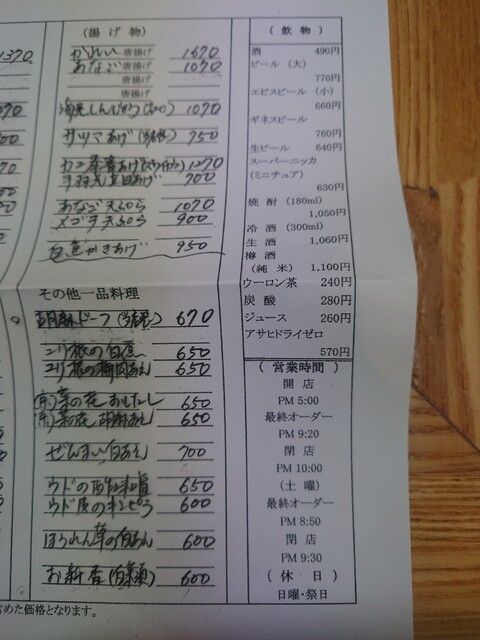 (揚げ物)
かれい唐揚げ 1670
あなご唐揚げ 1070
唐揚げ
唐揚げ
1070
サツマあげ 750
1270
700
あなご天ぷら 1070
メゴチ天ぷら 900
かきあげ 950
その他一品料理
胡麻ドーフ 670
ユリ根の 650
ユリ根の梅肉あえ 650
菜の花おしたし 650
菜の花 胡麻あえ 650
ぜんまい白あえ 700
ウドの酢味噌 650
ウド皮のキンピラ 600
ほうれん草の白あえ 600
お新香(白菜) 600
1370
た価格となります。
(飲物)
酒 490円
ビール (大)
770円
エビスビール (小)
660円
ギネスビール
760円
生ビール 640円
スーパーニッカ
(ミニチュア)
630円
焼酎 (180ml)
1,050円
冷酒 (300ml)
生酒 1,060円
樽酒
(純米) 1,100円
ウーロン茶 240円
炭酸 280円
ジュース 260円
アサヒドライゼロ
570円
(営業時間)
開店
PM 5:00
最終オーダー
PM 9:20
閉店
PM 10:00
(土曜)
最終オーダー
PM 8:50
閉店
PM 9:30
(休日)
日曜・祭日